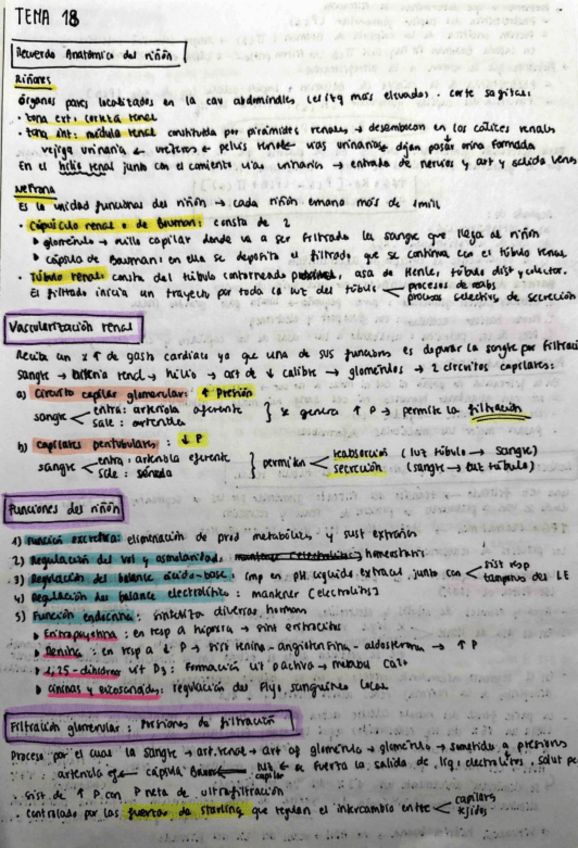 TEMA 18
Recuerdo Anatómico del riñón
Riñones
órganos pares localizados en la cav abdominales, (el izq más elevado). corte sagital:
· zona ext: corteza renal
· zona int: médula renal constituida por pirámides renales → desembocan en los cálices renales
vejiga urinaria ← uréteres ← pelvis renal vias urinarias dejan pasar orina formada
En el hilio renal junto con el comiento vias urinarias → entrada de nervios y art y salida venas
Nefrona
Es la unidad funcional del riñón → cada riñón más de 1mill
· Corpúsculo renal o de Bowman: consta de 2
glomérulo → ovillo capilar donde va a ser filtrada la sangre que llega al riñón
cápsula de Bowman: en ella se deposita el filtrado, que se continua con el túbulo renal
· Túbulo renal: consta del túbulo contorneado proximal, asa de Henle, túbulo dist y colector.
El filtrado inicia un trayecto por toda la luz del túbulo < procesos de reabs
procesos selectivos de secreción
Vascularización renal
Recibe un x ↑ de gasto cardiaco ya que una de sus funciones es depurar la sangre por filtraci
sangre → arteria renal → hilio → art de ↓ calibre → glomérulos → 2 circuitos capilares:
a) Circuito capilar glomerular: ↑ Presión
sangre < entra: arteriola aferente } se genera ↑ P → permite la filtración
sale: eferente
b) capilares peritubulares: ↓ P
sangre < entra: arteriola eferente } permiten < reabsorción (luz túbulo → sangre)
sale: secreción (sangre → luz túbulo)
Funciones del riñón
1) Función excretora: eliminación de prod metabólicos y sust extrañas
2) Regulación del vol y osmolaridad, homeostasis
3) Regulación del balance ácido-base: imp en pH líquido extracel junto con < sist resp
tampones del LE
4) Regulación del balance electrolítico: mantener [electrolitos]
5) Función endocrina: sintetiza diversas hormonas
Eritropoyetina: en resp a hipoxia → sint eritrocitos
Renina: en resp a ↓ P → sist renina-angiotensina-aldosterona → ↑ P
1,25-dihidroxi vit D3: formación vit D activa → metab Ca2+
cininas y eicosanoides: regulación del flujo sanguíneo local
Filtración glomerular: Presiones de filtración
Proceso por el cual la sangre → art. renal → art af glomérulo → glomérulo → sometida a presiones
arteriola ef cápsula Bowman se fuerza la salida de liq, electrolitos, solut
sist de ↑ P con P neta de ultrafiltración
controlado por las fuerzas de starling que regulan el intercambio entre < capilares
tejidos